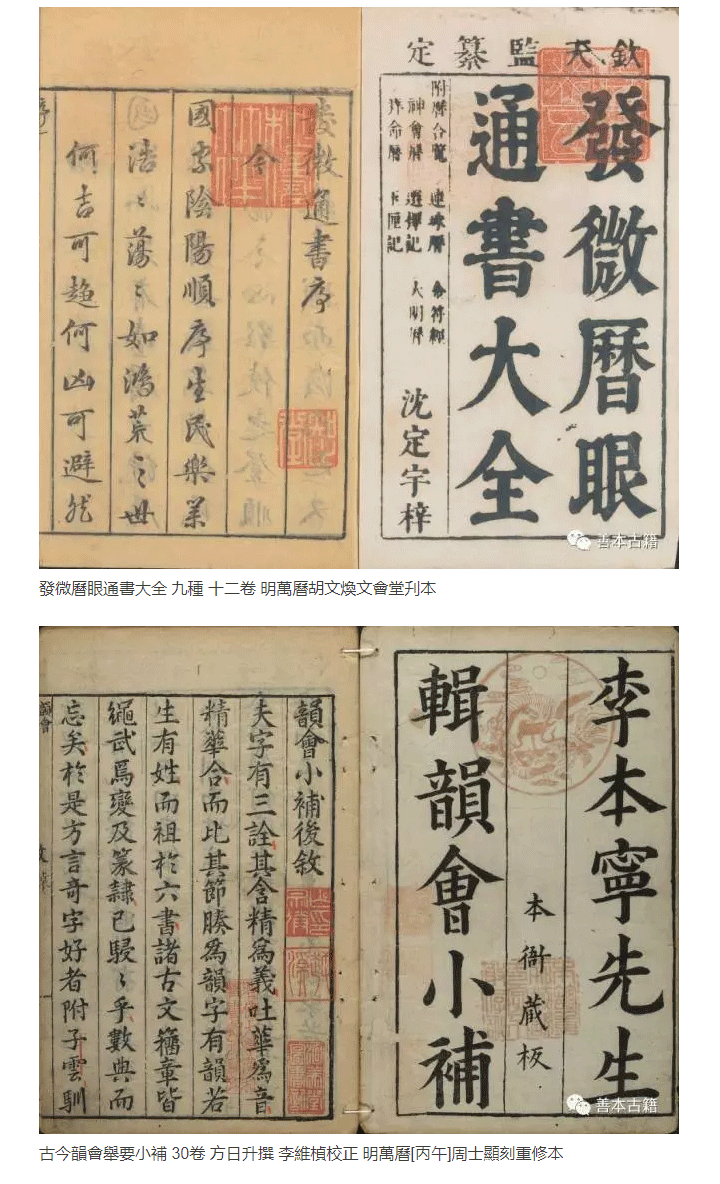 欽天監纂定
發微曆眼
通書大全
附曆合覽
神會曆
連珠曆
選擇記
大明曆
沈定宇梓
發微通書序
今
國家陰陽順序生民樂業
浩〻蕩〻如鴻荒之世
何吉可趨何凶可避然
善本古籍
發微曆眼通書大全 九種 十二卷 明萬曆胡文煥文會堂刋本
李本寧先生
本衙藏板
輯韻會小補
韻會小補後敘
夫字有三詮其含精為義吐華為音
精華合而比其節腠為韻字有韻若
生有姓而祖於六書諸古文籀章皆
繩武爲變及篆隸已駸〻乎數典而
忘矣於是方言奇字好者附子雲馴
善本古籍
古今韻會舉要小補 30卷 方日升撰 李維楨校正 明萬曆[丙午]周士顯刻重修本